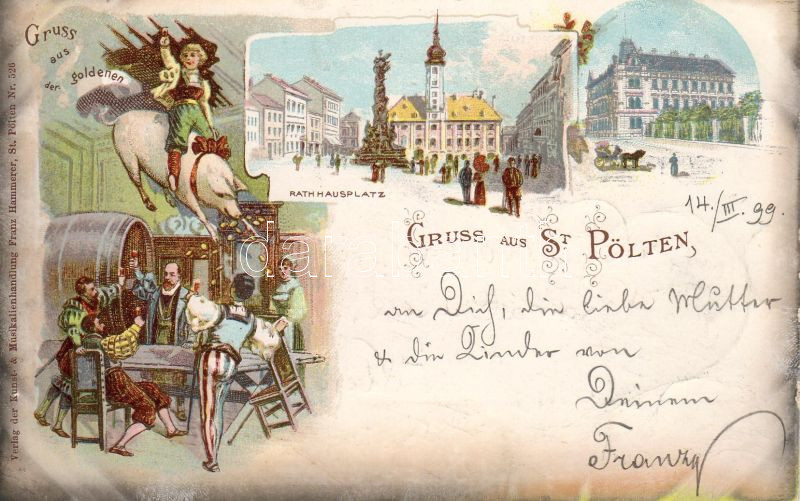 Gruss
aus
der goldenen
RATHHAUSPLATZ
14./III. 99.
GRUSS AUS ST PÖLTEN,
an Dich, die liebe Mutter
& die Kinder von
Deinem
Franz
Verlag der Kunst- & Musikalienhandlung Franz Hammerer, St. Pölten Nr. 526